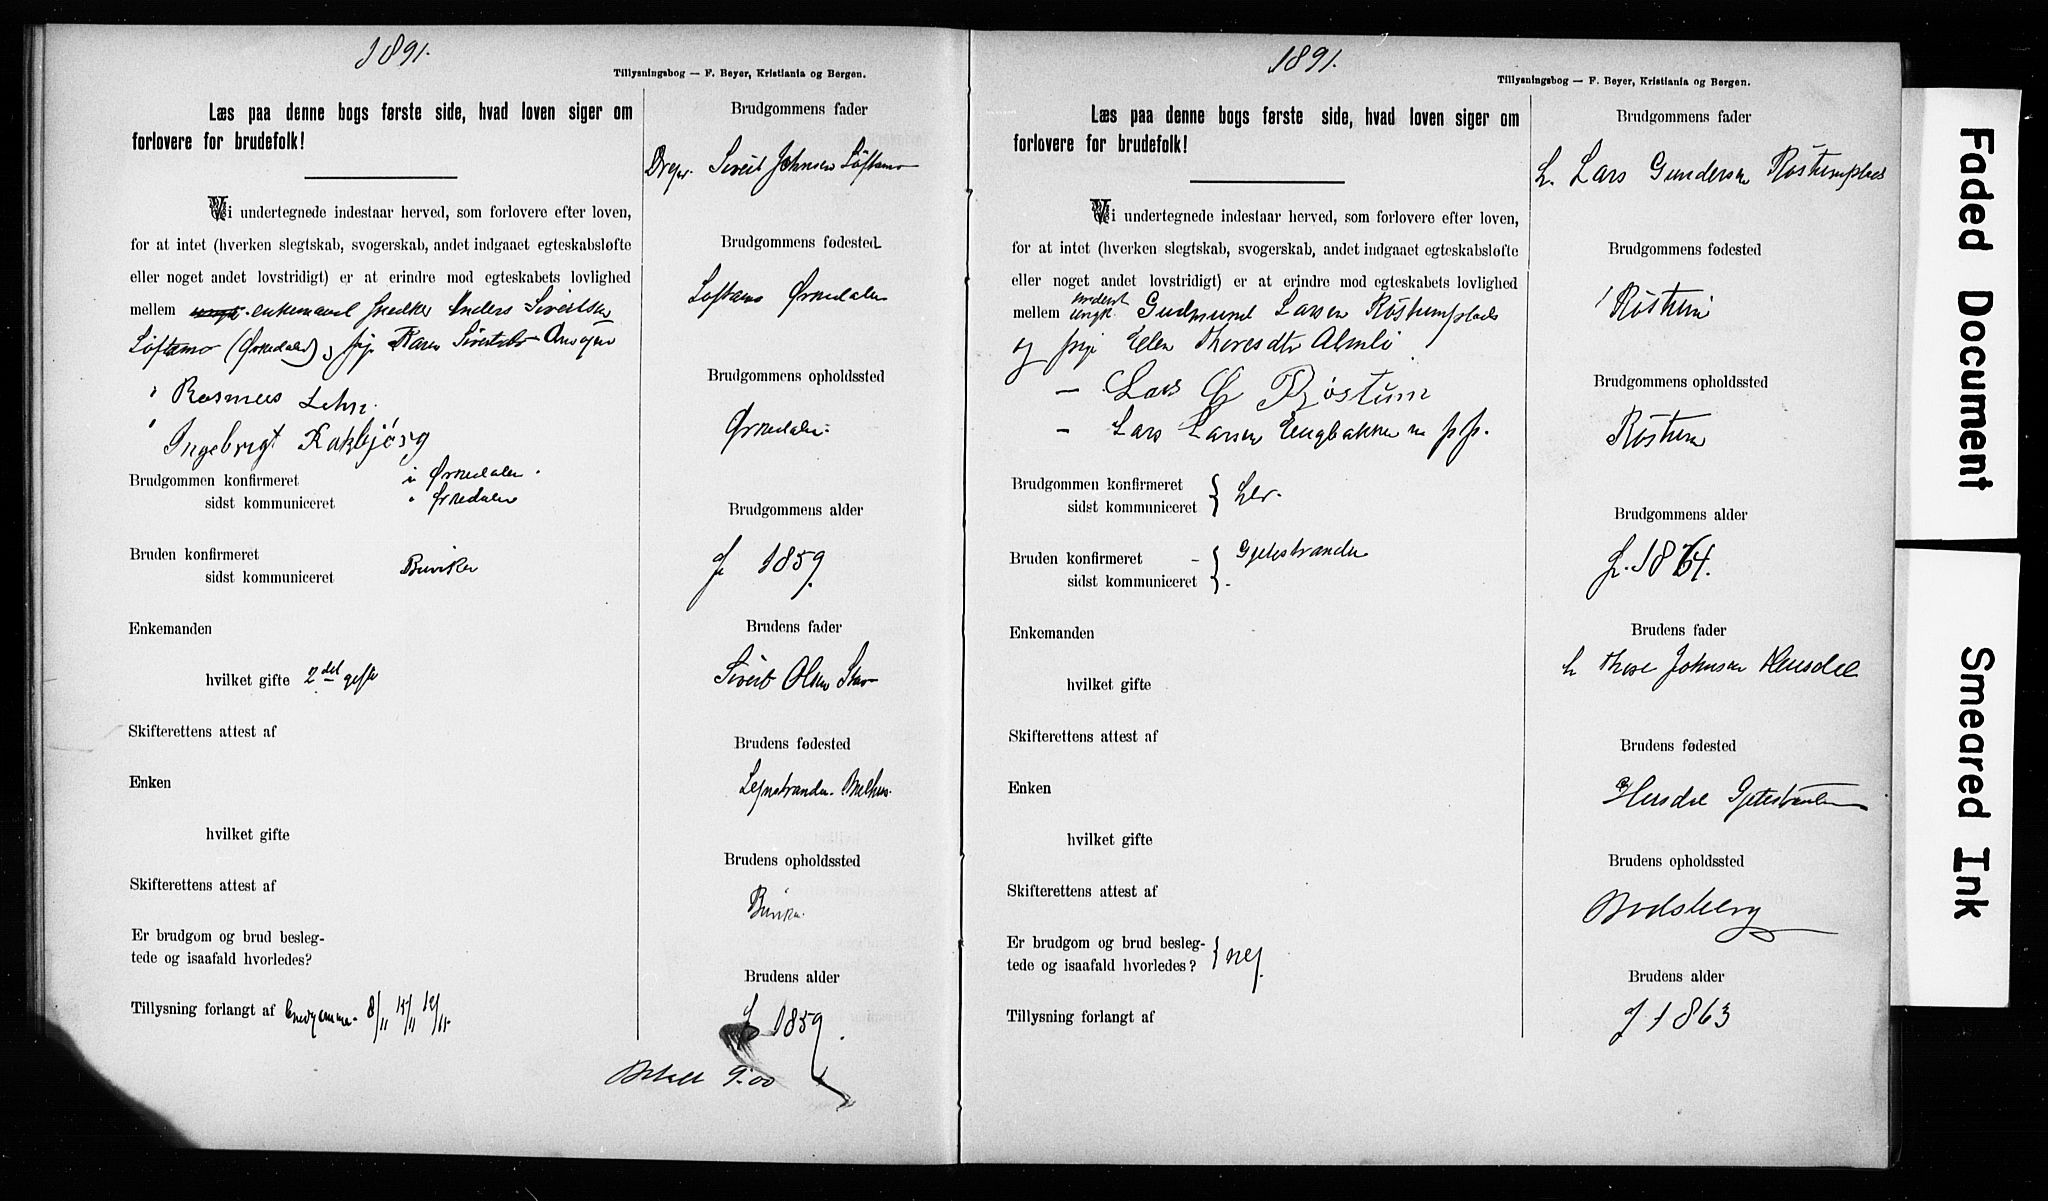 1891.
Tillysningsbog — F. Beyer, Kristiania og Bergen.
Læs paa denne bogs første side, hvad loven siger om
forlovere for brudefolk!
Vi undertegnede indestaar herved, som forlovere efter loven,
for at intet (hverken slegtskab, svogerskab, andet indgaaet egteskabsløfte
eller noget andet lovstridigt) er at erindre mod egteskabets lovlighed
mellem enkemand Snedker Anders Sivertsen
Løftamo (Ørkedalen) og pige Karen Sivertsdtr
Rasmus Lehn
Ingebrigt Kakbjørg
Brudgommen konfirmeret i Ørkedalen.
sidst kommuniceret " Ørkedalen
Bruden konfirmeret
sidst kommuniceret Buviken
Enkemanden
hvilket gifte 2det gifte
Skifterettens attest af
Enken
hvilket gifte
Skifterettens attest af
Er brudgom og brud besleg-
tede og isaafald hvorledes?
Tillysning forlangt af 8/11 15/11
Brudgommens fader
Sivert Johnsen Løftamo
Brudgommens fødested
Løftamo Ørkedalen
Brudgommens opholdssted
Ørkedalen
Brudgommens alder
f 1859.
Brudens fader
Sivert Olsen
Brudens fødested
Leinstranden Melhus.
Brudens opholdssted
Buviken
Brudens alder
f 1859.
Betalt 9.00
1891.
Tillysningsbog — F. Beyer, Kristiania og Bergen.
Læs paa denne bogs første side, hvad loven siger om
forlovere for brudefolk!
Vi undertegnede indestaar herved, som forlovere efter loven,
for at intet (hverken slegtskab, svogerskab, andet indgaaet egteskabsløfte
eller noget andet lovstridigt) er at erindre mod egteskabets lovlighed
mellem ungk. Gudmund Larsen Røstumplads
og pige Elen Thoresdtr Almli
— Lars G Røstum
— Lars Larsen Engbakken m p. p.
Brudgommen konfirmeret
sidst kommuniceret } her.
Bruden konfirmeret
sidst kommuniceret } Gjetestranden
Enkemanden
hvilket gifte
Skifterettens attest af
Enken
hvilket gifte
Skifterettens attest af
Er brudgom og brud besleg-
tede og isaafald hvorledes? } nej.
Tillysning forlangt af
Brudgommens fader
Lars Gundersen Røstumplads
Brudgommens fødested
Røstum
Brudgommens opholdssted
Røstum
Brudgommens alder
f. 1864.
Brudens fader
Thore Johnsen Heusdal
Brudens fødested
Heusdal Gjetestranden
Brudens opholdssted
Modsberg
Brudens alder
f 1863
Faded Document
Smeared Ink